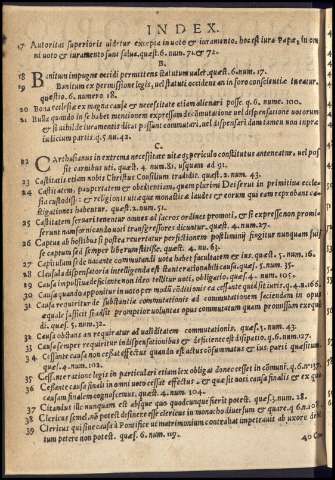 INDEX.
17 Autoritas superioris videtur excepta in voto & iuramento. hoc est iura Papæ, in om
ni voto & iuramento sunt salua. quæst. 6. num. 71. & 72.
B.
18 Banitum impugne occidi permittens statutum valet. quæst. 6. num. 17.
19 Banitum ex permissione legis, vel statuti occidens an in foro conscientiæ tueatur.
quæstio. 6. numero 18.
20 Bona ecclesiæ ex magna causa & necessitate etiam alienari posse. q. 6. nume. 100.
21 Bulla quando in se habet mentionem expressam de commutatione vel dispensatione votorum
& si nihil de iuramentis dicat possunt commutari, vel dispensari dum tamen non in præ
iudicium partis. q. 5. nu. 42.
C.
22 Carthusianus in extrema necessitate vitæ & periculo constitutus an teneatur, vel pos
sit carnibus vti, quæst. 4. num. 81. vsquam ad 91.
23 Castitatis etiam nobis Christus Consilium tradidit. quæst. 2. num. 43.
24 Castitatem, paupertatem & obedientiam, quam plurimi Dei serui in primitiua eccle-
sia custodisse & religionis vitæque monasticæ laudes & eorum qui eam reprobant ca-
stigationes habentur. quæst. 2. num. 51.
25 Castitatem seruare tenentur omnes ad sacros ordines promoti, & si expresse non promise
serunt nam fornicando voti transgressores dicuntur. quæst. 4. num. 27.
26 Captus ab hostibus si postea reuertatur per fictionem postliminij fingitur nunquam fuis
se captum sed semper liberum fuisse. quæst. 4. nu. 63.
27 Capitulum sede vacante commutandi vota habet facultatem & ius. quæst. 5. num. 16.
28 Clausula dispensatoria intelligenda est stante rationabili causa. quæst. 5. num. 35.
29 Causa impulsiua deficiente non ideo tollitur voti, obligatio. quæst. 4. num. 105.
30 Causa quando apponitur in voto per modum conditionis ea cessante quid sit iuris. q. 4. n. 166.
31 Causa requiritur de substantia commutationis ad commutationem faciendam in opus
æquale sufficit si adsit promptior voluntas opus commutatum quam promissum exequē
di. quæst. 5. num. 32.
32 Causa ad tans an requiratur ad validitatem commutationis. quæst. 5. num. 43.
33 Causa semper requiritur in dispensationibus & deficiente est dissipatio. q. 6. num. 127.
34 Cessante causa non cessat effectus quando est actus consummatus & ius parti quæsitum
quæst. 4. num. 102.
35 Cessante ratione legis in particulari etiam lex obligat donec cesset in communi. q. 6. nu. 137.
36 Cessante causa finali in omni voto cessat effectus, & quæ sit voti causa finalis & ex qua
causam finalem cognoscemus. quæst. 4. num. 104.
37 Citandus ille nunquam est absque quo quodcunque fieri potest. quæst. 3. num. 28.
38 Clericus semel, nō potest desinere esse clericus in monacho diuersum & quare. q. 6. n. 108.
39 Clericus qui sine causa à Pontifice vt matrimonium contrahat impetrauit ab vxore de-
tum petere non potest. quæs. 6. num. 119.
40 Com